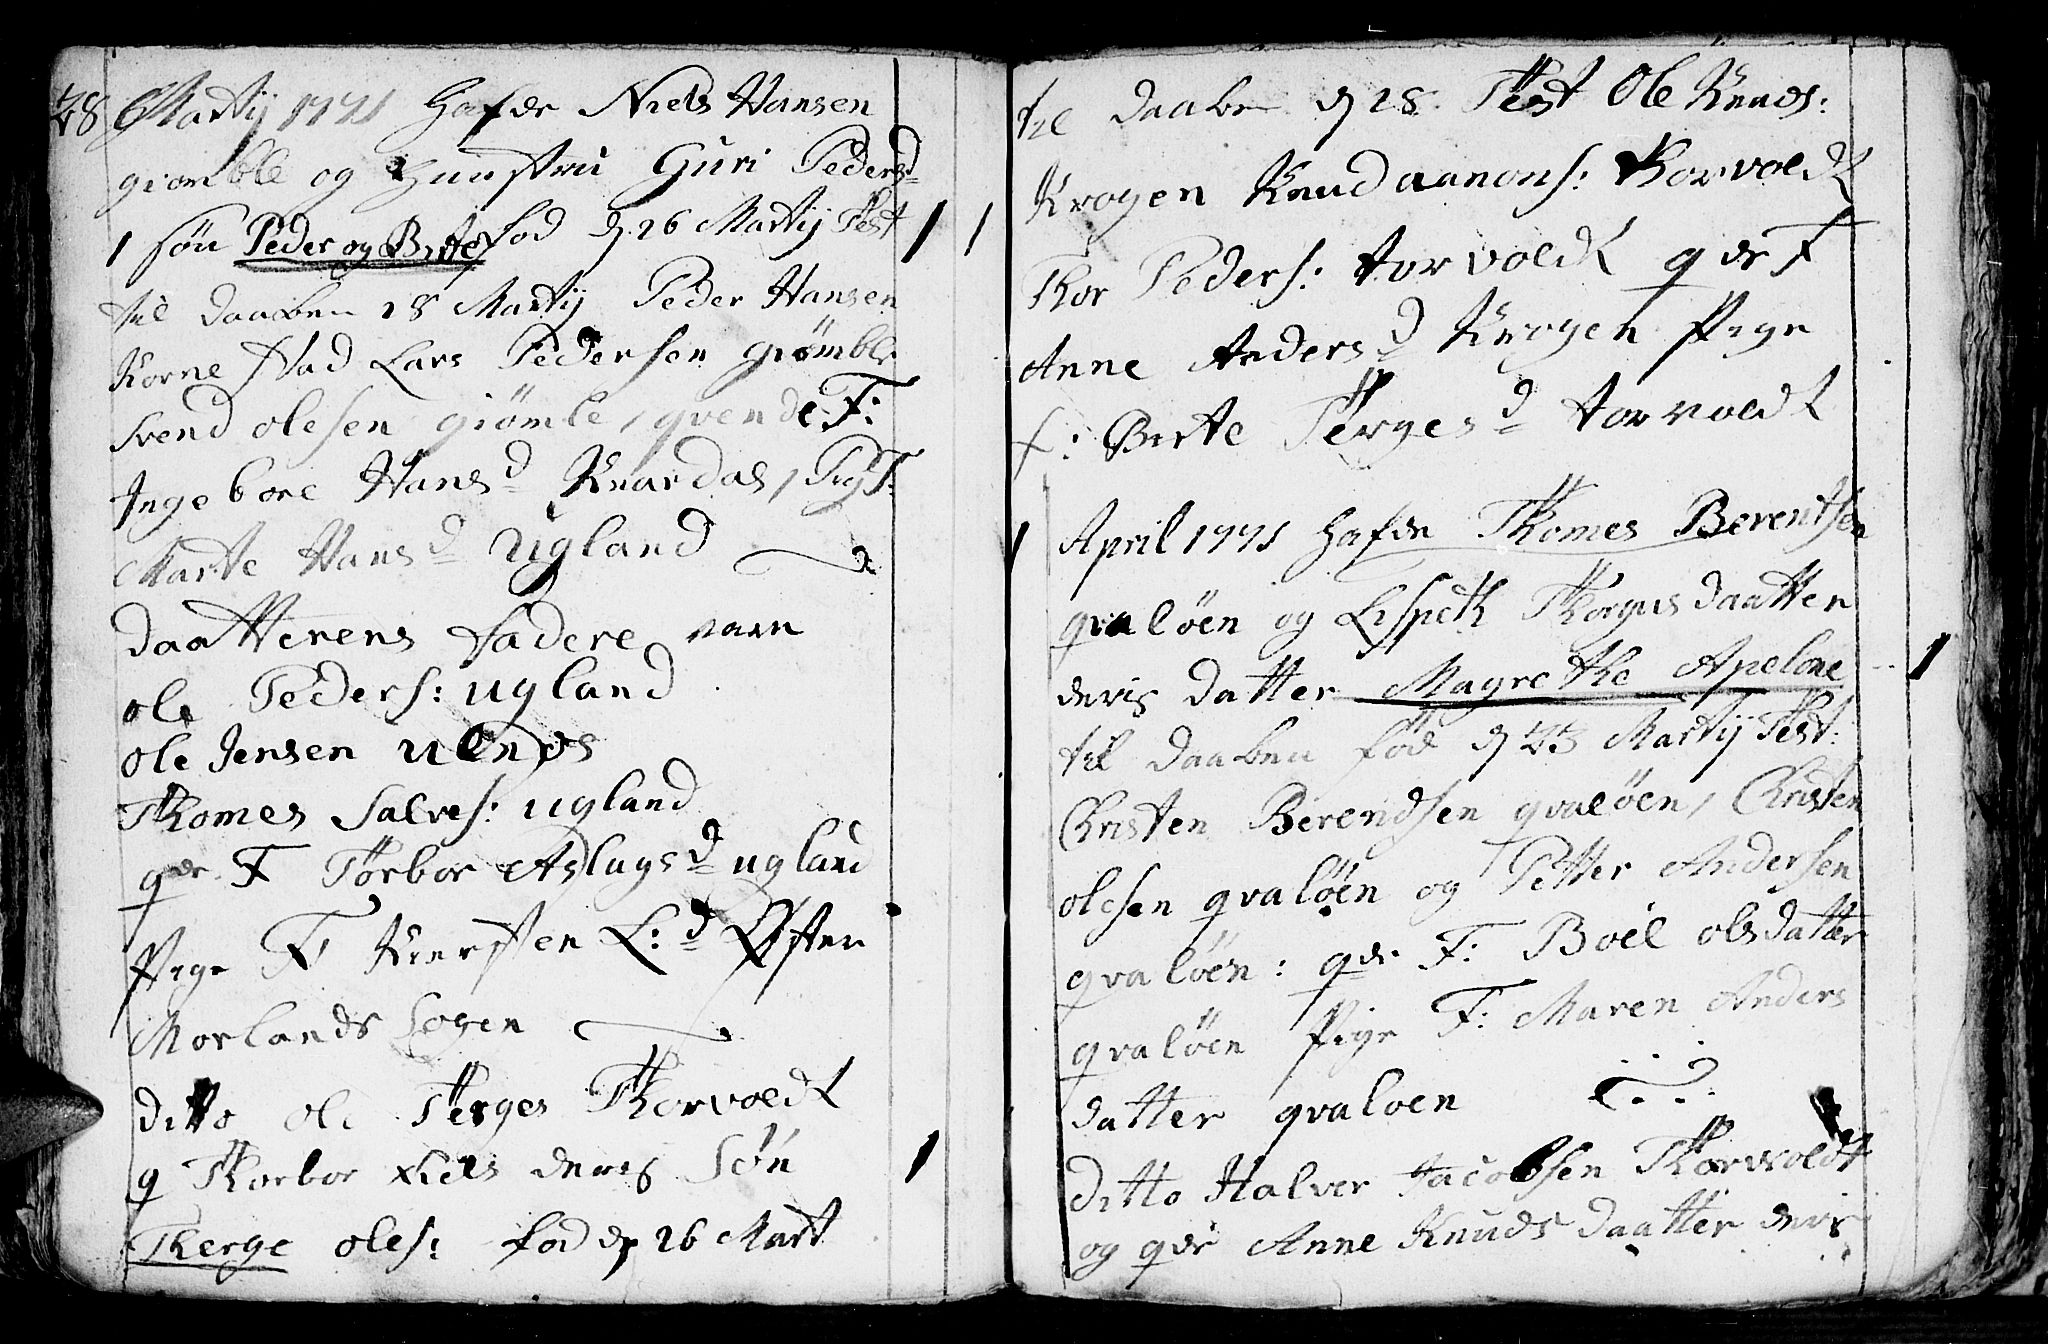 28 Martij 1771 Hafde Niels Hansen
giomble og Huustru Guri Pedersd
1 søn Peder og Birte fød d 26 Martij Test 1 1
til daaben 28 Martij Peder Hansen
Korne stad Lars Pedersen Giømble
Svend olesen giømle, qvende F:
Ingebore Hansd Knardal, Pig F:
Marte Hansd Ugland
daatterens fadere vare
ole Peders: ugland
ole Jensen ulenes
Thomes Salves: ugland
qde F Torbor Aslagsd ugland
Pige F Kiersten L:d Øster
Morlands Sogen
ditto ole Terges Thorvoldt
q Thorbor Niels deris Søn 1
Therge oles: fød d 26 Mart
til daaben d 28 Test Ole Knuds:
Krogen Knud aanons: Thorvoldt
Thor Peders: torvoldt qde F
Anne Andersd Krogen Pige
f: Birte Tergesd torvoldt
1 April 1771 Hafde Thomes Berentsen
qvaløen og Lispeth Thorgusdaatter
deris datter Magrethe Apelone 1
til daaben fød d 23 Martij Test:
Christen Berendsen qvaløen, Christen
olesen qvaløen og Petter Andersen
qvaløen: qde F: Boel olsdatter
qvaløen Pige F: Maren Anders
datter qvaloen
ditto Halver Jacobsen Thorvoldt
og qde Anne Knuds daatter deris